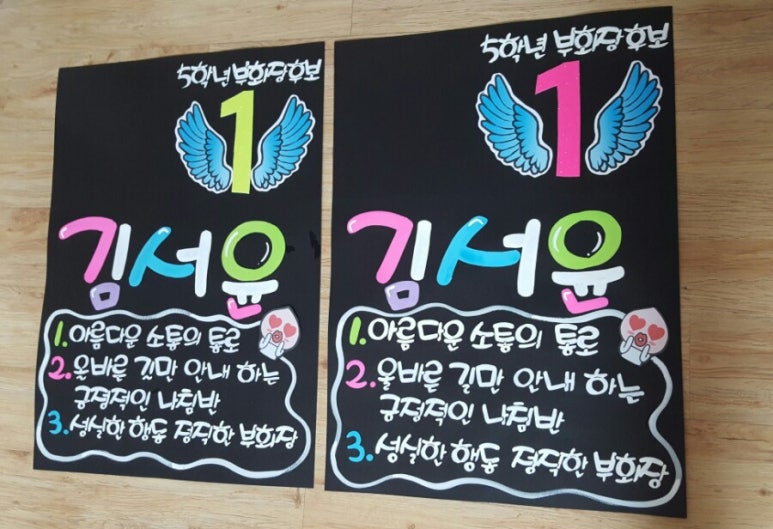 5학년 부회장 후보
1
김서윤
1. 아름다운 소통의 통로
2. 올바른 길만 안내 하는
긍정적인 나침반
3. 성실한 행동 정직한 부회장
5학년 부회장 후보
1
김서윤
1. 아름다운 소통의 통로
2. 올바른 길만 안내 하는
긍정적인 나침반
3. 성실한 행동 정직한 부회장